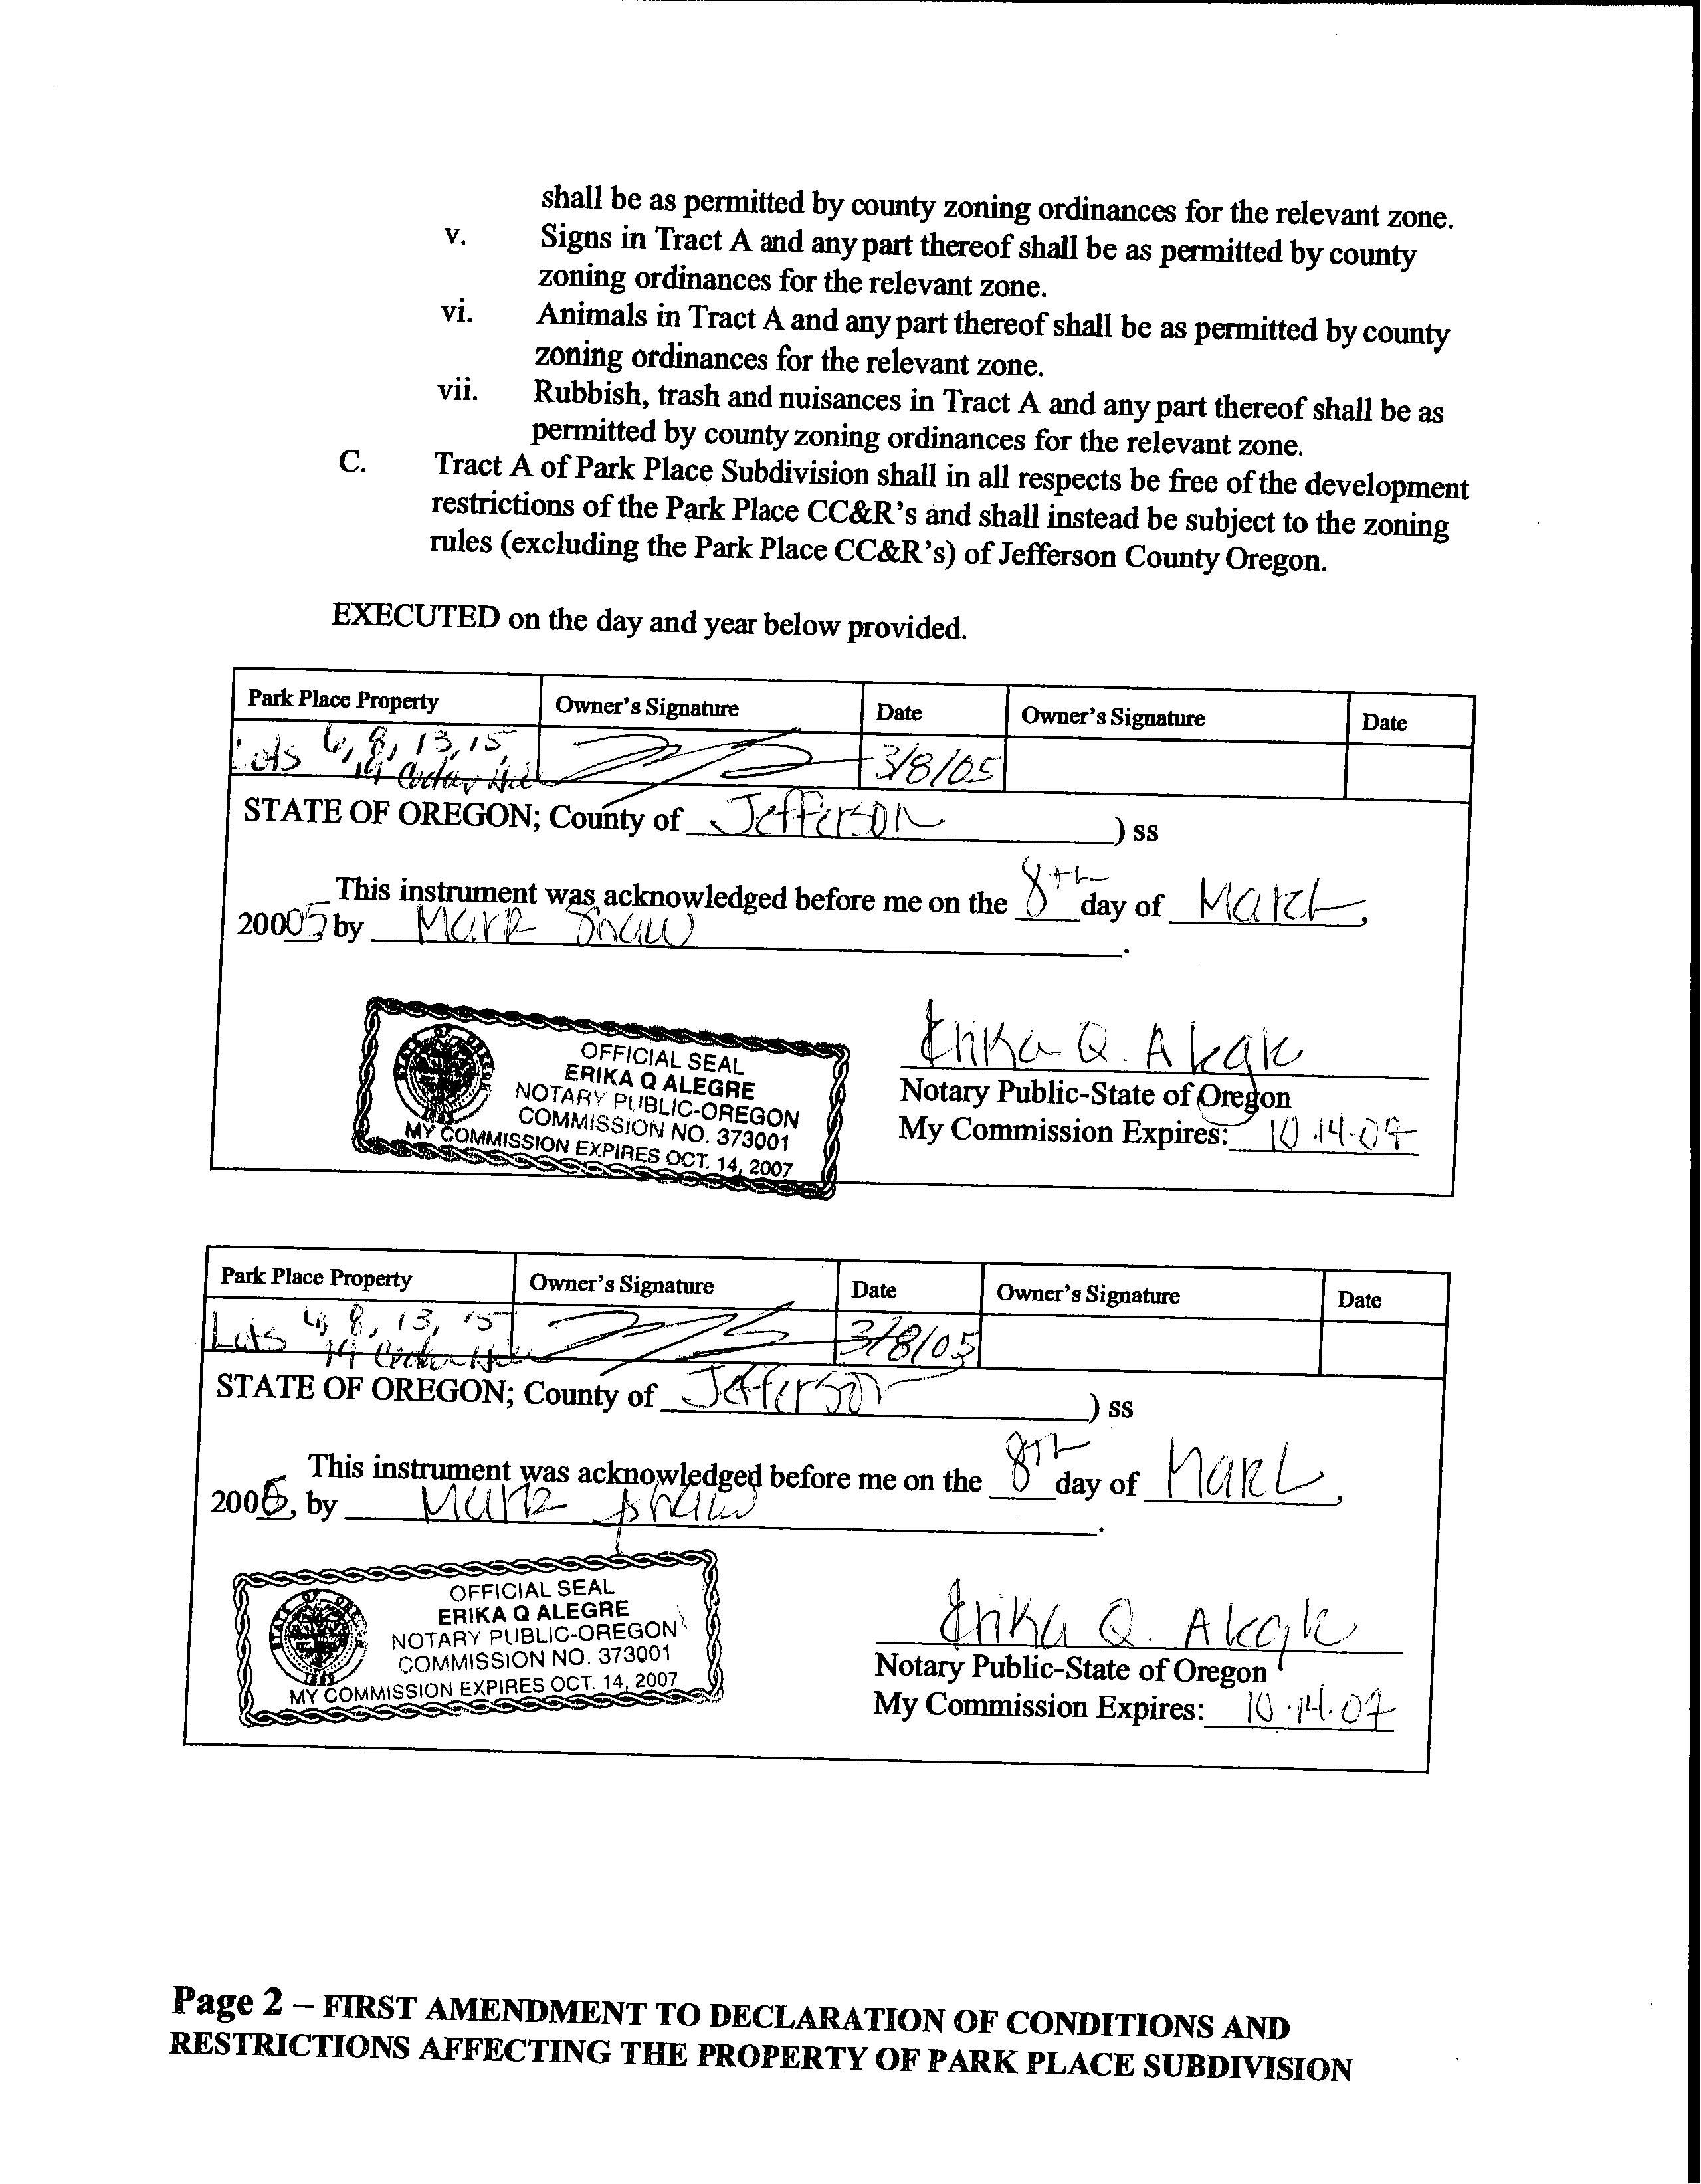 shall be as permitted by county zoning ordinances for the relevant zone.
v. Signs in Tract A and any part thereof shall be as permitted by county
zoning ordinances for the relevant zone.
vi. Animals in Tract A and any part thereof shall be as permitted by county
zoning ordinances for the relevant zone.
vii. Rubbish, trash and nuisances in Tract A and any part thereof shall be as
permitted by county zoning ordinances for the relevant zone.
C. Tract A of Park Place Subdivision shall in all respects be free of the development
restrictions of the Park Place CC&R's and shall instead be subject to the zoning
rules (excluding the Park Place CC&R's) of Jefferson County Oregon.
EXECUTED on the day and year below provided.
Park Place Property Owner's Signature Date Owner's Signature Date
Lots 6, 8, 13, 15, 3/8/05
STATE OF OREGON; County of Jefferson ) ss
This instrument was acknowledged before me on the 8th day of March,
2005 by Mark Shaw.
OFFICIAL SEAL
ERIKA Q ALEGRE
NOTARY PUBLIC-OREGON
COMMISSION NO. 373001
MY COMMISSION EXPIRES OCT. 14, 2007
Erika Q. Alegre
Notary Public-State of Oregon
My Commission Expires: 10.14.07
Park Place Property Owner's Signature Date Owner's Signature Date
Lots 6, 8, 13, 15 3/8/05
STATE OF OREGON; County of Jefferson ) ss
This instrument was acknowledged before me on the 8th day of March,
2005, by Mark Shaw.
OFFICIAL SEAL
ERIKA Q ALEGRE
NOTARY PUBLIC-OREGON
COMMISSION NO. 373001
MY COMMISSION EXPIRES OCT. 14, 2007
Erika Q. Alegre
Notary Public-State of Oregon
My Commission Expires: 10.14.07
Page 2 – FIRST AMENDMENT TO DECLARATION OF CONDITIONS AND
RESTRICTIONS AFFECTING THE PROPERTY OF PARK PLACE SUBDIVISION